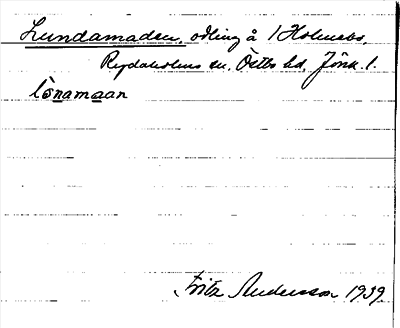 Lundamaden, odling å 1 Holmabo,
Rydaholms sn. Östbo hd, Jönk. l.
lȯ̀namaan
Fritz Andersson 1939